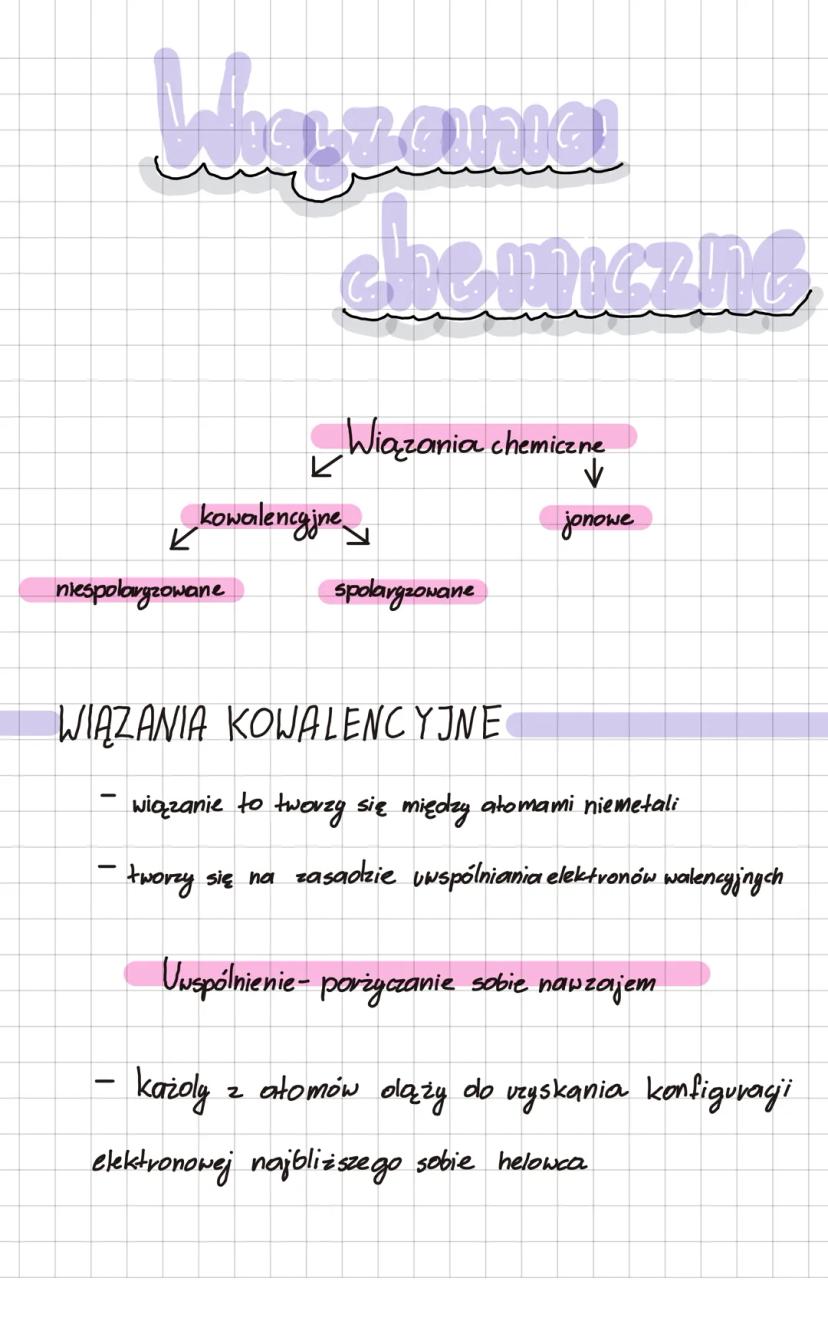 Wiązania
chemiczne
Wiązania chemiczne
kowalencyjne jonowe
niespolaryzowane spolaryzowane
WIĄZANIA KOWALENCYJNE
- wiązanie to tworzy się między atomami niemetali
- tworzy się na zasadzie uwspólniania elektronów walencyjnych
Uwspólnienie- porżyczanie sobie nawzajem
- każdy z atomów dąży do uzyskania konfiguracji
elektronowej najbliższego sobie helowca